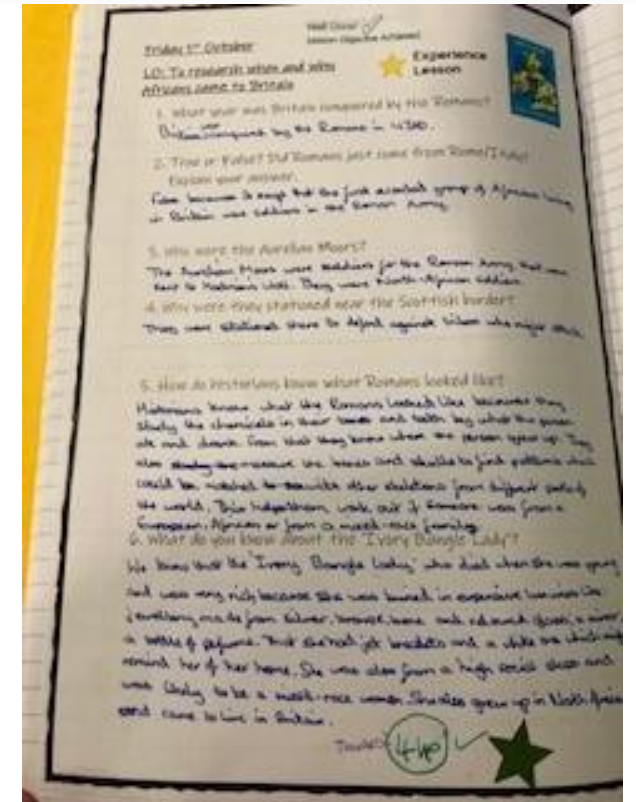 Well Done! ✓
Lesson Objective Achieved
Friday 1st October
Experience
Lesson
LO: To research when and why
Africans came to Britain
1. What year was Britain conquered by the Romans?
Britain was conquered by the Romans in 43AD.
2. True or False? Did Romans just come from Rome/Italy?
Explain your answer.
False because the first group of Africans living
in Britain were soldiers in the Roman Army.
3. Who were the Aurelian Moors?
The Aurelian Moors were soldiers for the Roman Army that were
sent to Hadrian's Wall. They were North-African soldiers.
4. Why were they stationed near the Scottish border?
They were stationed there to defend against tribes who might attack
5. How do historians know what Romans looked like?
Historians know what the Romans looked like because they
study the chemicals in their bones and teeth by what the person
ate and drank from that they know where the person grew up. They
also measure the bones and skulls to find patterns which
could be matched to with other skeletons from different parts of
the world. This helps them work out if someone was from a
European, African or from a mixed-race family.
6. What do you know about the 'Ivory Bangle Lady'?
We know that the 'Ivory Bangle Lady' who died when she was young
and was very rich because she was buried in expensive luxuries like
jewellery made from silver, bronze, bone and coloured glass, a mirror,
a bottle of perfume. That she had jet bracelets and a white one which might
remind her of her home. She was also from a high social class and
was likely to be a mixed-race women. She also grew up in North Africa
and came to live in Britain.